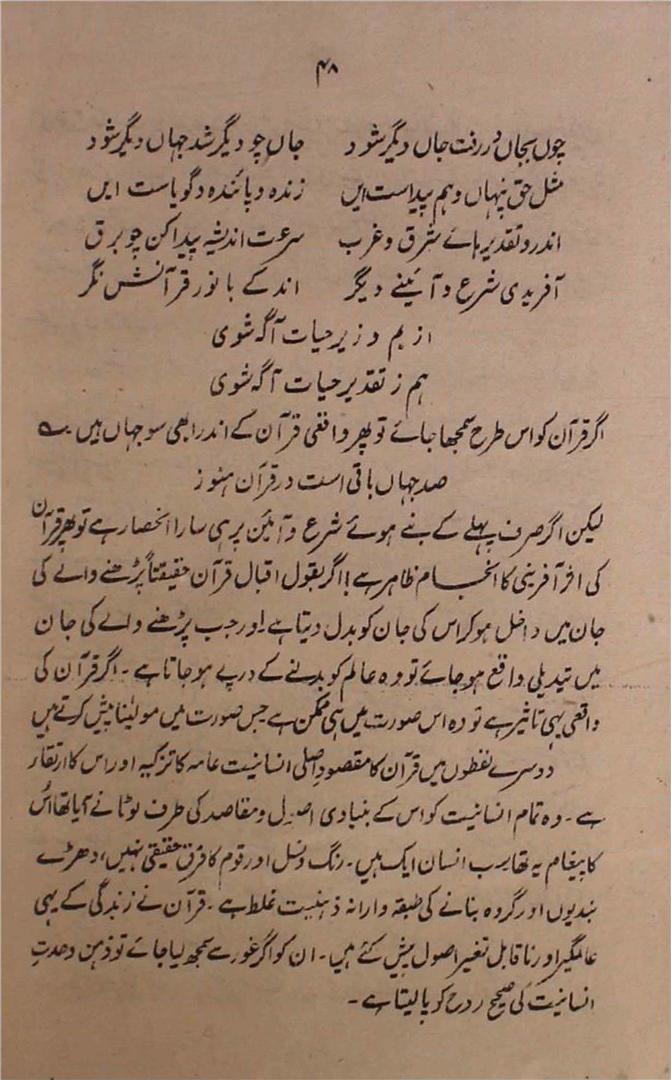 ۴۸
چوں بجاں در رفت جاں دیگر شود جاں چو دیگر شد جہاں دیگر شود
مثل حق پنہاں وہم پیداست ایں زندہ و پائندہ و گویاست ایں
اندرو تقدیر ہائے شرق و غرب سرعت اندیشہ پیدا کن چو برق
آفریدی شرع و آئینے دیگر اند کے با نور قرآنش نگر
از بم و زیر حیات آگہ شوی
ہم ز تقدیر حیات آگہ شوی
اگر قرآن کو اس طرح سمجھا جائے تو پھر واقعی قرآن کے اندر ابھی سو جہاں ہیں ؎
صد جہاں باقی است در قرآن ہنوز
لیکن اگر صرف پہلے کے بنے ہوئے شرع و آئین پر ہی سارا انحصار ہے تو پھر قرآن
کی اثر آفرینی کا انجام ظاہر ہے! اگر بقول اقبال قرآن حقیقتاً پڑھنے والے کی
جان میں داخل ہو کر اس کی جان کو بدل دیتا ہے۔ اور جب پڑھنے والے کی جان
میں تبدیلی واقع ہو جائے تو وہ عالم کو بدلنے کے درپے ہو جاتا ہے۔ اگر قرآن کی
واقعی یہی تاثیر ہے تو وہ اس صورت میں ہی ممکن ہے جس صورت میں مولینا پیش کرتے ہیں
دوسرے لفظوں میں قرآن کا مقصود اصلی انسانیت عامہ کا تزکیہ اور اس کا ارتقار
ہے۔ وہ تمام انسانیت کو اس کے بنیادی اصول و مقاصد کی طرف لوٹانے آیا تھا اس
کا پیغام یہ تھا۔ سب انسان ایک ہیں۔ رنگ و نسل اور قوم کا فرق حقیقی نہیں، دھڑے
بندیوں اور گروہ بنانے کی طبقہ وارانہ ذہنیت غلط ہے۔ قرآن نے زندگی کے یہی
عالمگیر اور ناقابل تغیر اصول پیش کئے ہیں۔ ان کو اگر غور سے سمجھ لیا جائے تو ذہن وحدتِ
انسانیت کی صحیح روح کو پا لیتا ہے۔